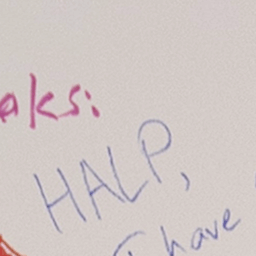 aks:
HALP,
I have